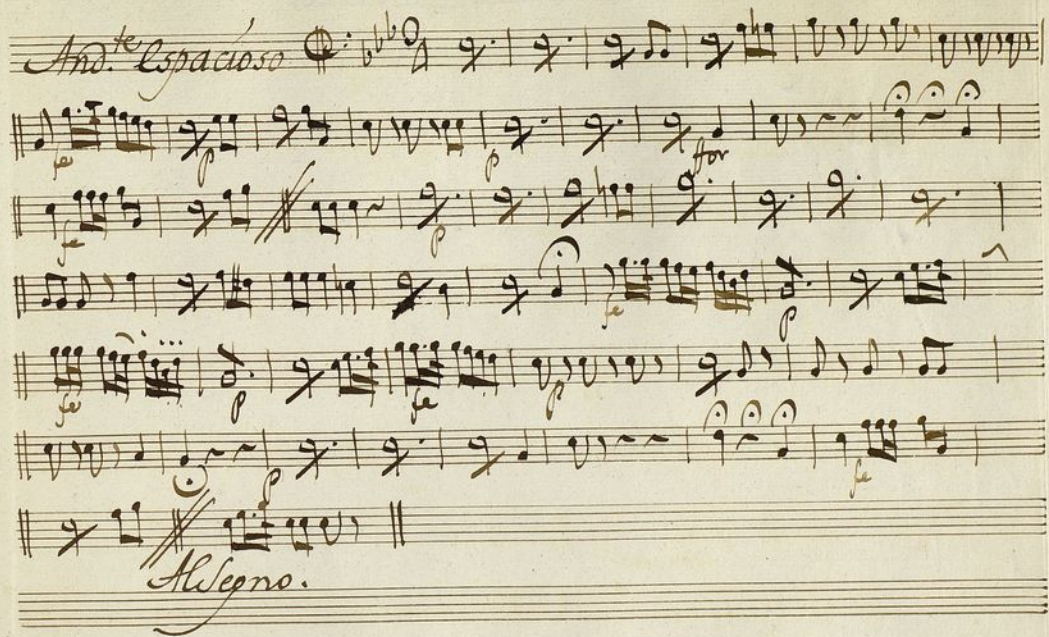 And.te Espacioso
fe p p for
fe p
fe p
fe p fe p
p fe
Al Segno.